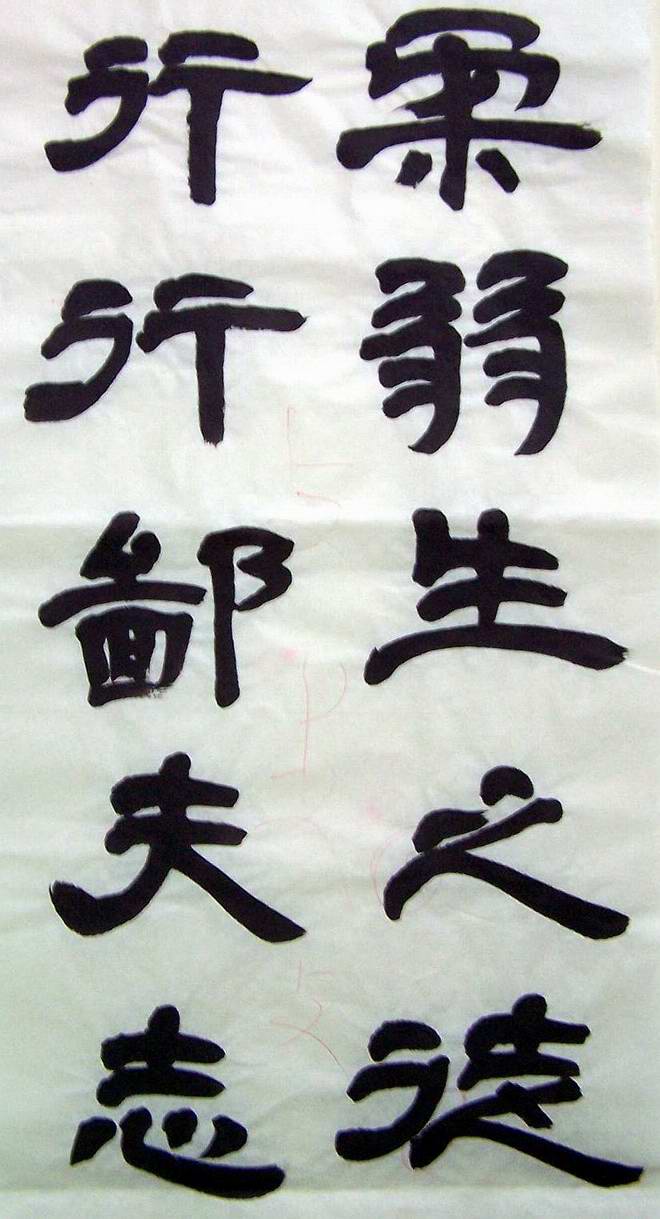 柔弱生之徒
行行鄙夫志